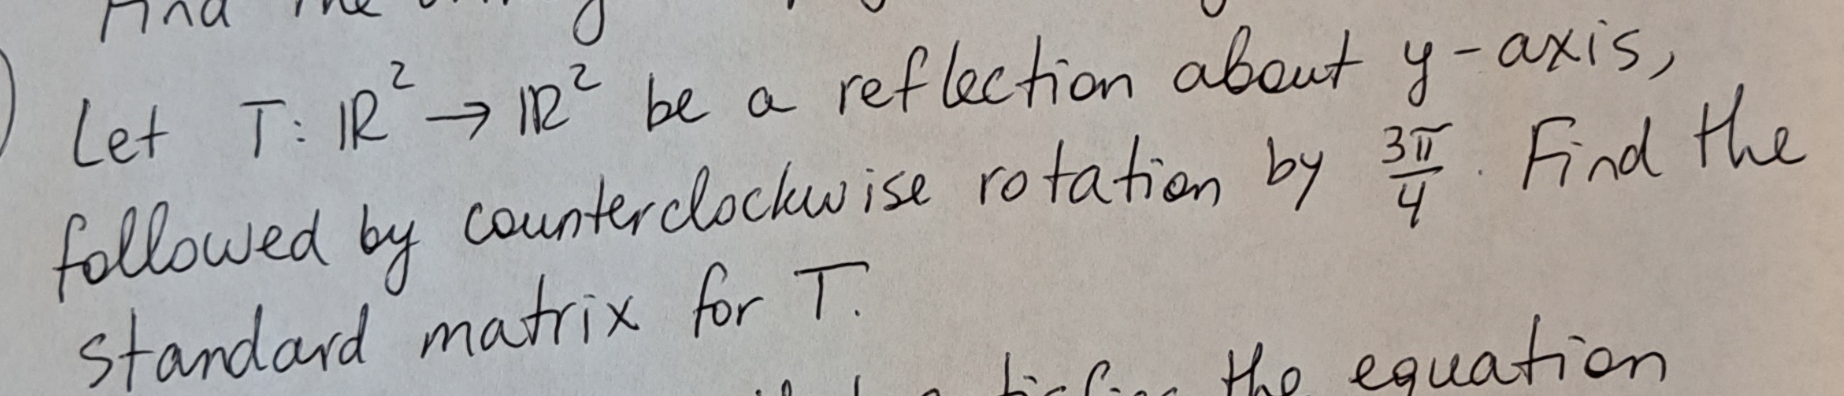 Find the
Let T: ℝ² → ℝ² be a reflection about y-axis,
followed by counterclockwise rotation by 3π/4. Find the
standard matrix for T.
the equation